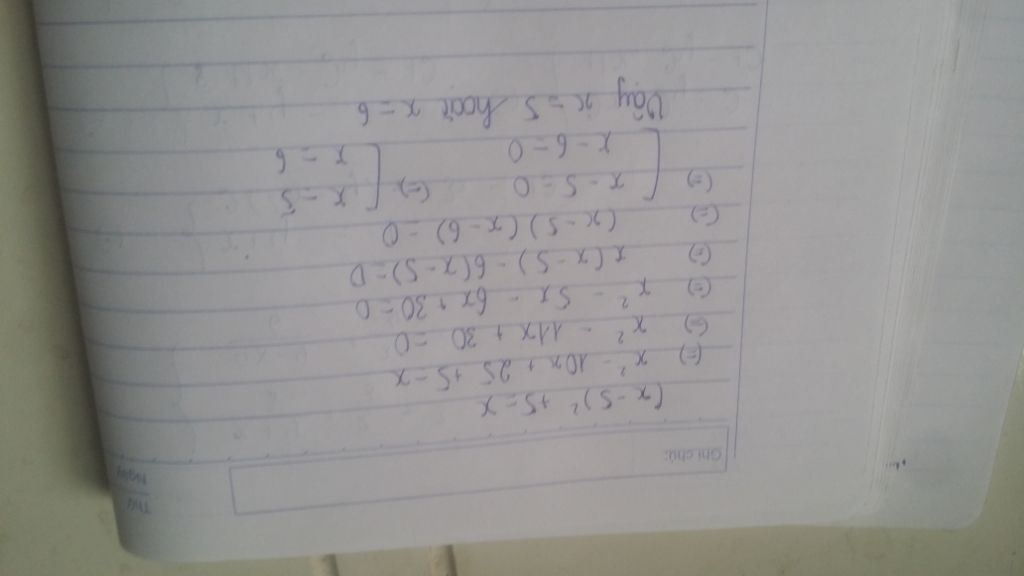 Thứ
Ngày
Ghi chú:
(x-5)² +5=x
(=) x² - 10x + 25 +5 -x
(=) x² - 11x + 30 = 0
(=) x² - 5x - 6x + 30 = 0
(=) x(x-5) - 6(x-5)=0
(=) (x-5)(x-6) = 0
(=) [ x - 5 = 0 (=) [ x = 5
x - 6 = 0 x = 6
Vậy x = 5 hoặc x = 6